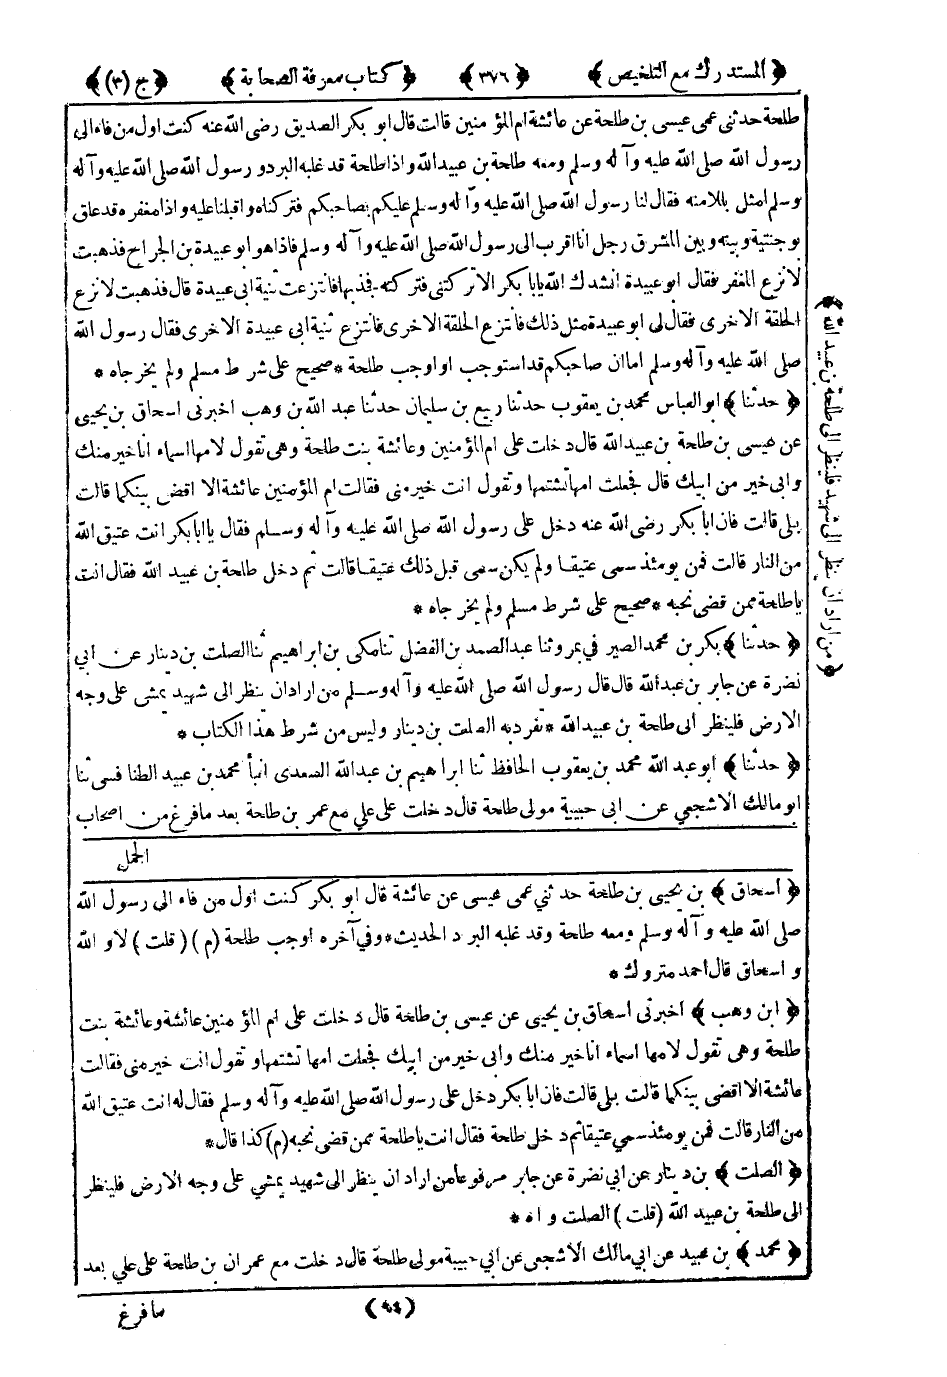 ﴿ المستدرك مع التلخيص ﴾ ﴿ ٣٧٦ ﴾ ﴿ كتاب معرفة الصحابة ﴾ ﴿ ج (٣) ﴾
طلحة حدثنى عمى عيسى بن طلحة عن عائشة ام المؤ منين قالت قال ابو بكر الصديق رضى الله عنه كنت اول من فاء الى
رسول الله صلى الله عليه وآ له وسلم ومعه طلحة بن عبيد الله واذا طلحة قد غلبه البر دو رسول الله صلى الله عليه وآ له
وسلم امثل بللا منه فقال لنا رسول الله صلى الله عليه وآ له وسلم عليكم بصاحبكم فتركناه واقبلنا عليه واذا مغفره قد علق
بو جنتية وبينه وبين المشرق رجل انا اقرب الى رسول الله صلى الله عليه وآ له وسلم فاذا هو ابو عبيدة بن الجراح فذهبت
لانزع المغفر فقال ابو عبيدة انشدك الله يابا بكر الا تركتنى فتركته فجذبها فانتزعت ثنية ابى عبيدة قال فذهبت لانزع
الحلقة الاخرى فقال لى ابو عبيدة مثل ذلك فانتزع الحلقة الاخرى فانتزع ثنية ابى عبيدة الاخرى فقال رسول الله
صلى الله عليه وآ له وسلم اما ان صاحبكم قد استوجب او اوجب طلحة * صحيح على شر ط مسلم ولم يخرجاه *
﴿ حدثنا ﴾ ابو العباس محمد بن يعقوب حدثنا ربيع بن سليمان حدثنا عبد الله بن وهب اخبرنى اسحاق بن يحيى
عن عيسى بن طلحة بن عبيد الله قال دخلت على ام المؤمنين وعائشة بنت طلحة وهى تقول لامها اسماء انا خير منك
وابى خير من ابيك قال فجعلت امها تشتمها وتقول انت خير منى فقالت ام المؤمنين عائشة الا اقضى بينكما قالت
بلى قالت فان ابا بكر رضى الله عنه دخل على رسول الله صلى الله عليه وآ له وسلم فقال يا ابا بكر انت عتيق الله
من النار قالت فمن يو مئذ سمى عتيقا ولم يكن سمى قبل ذلك عتيقا قالت ثم دخل طلحة بن عبيد الله فقال انت
يا طلحة ممن قضى نحبه * صحيح على شرط مسلم ولم يخر جاه *
﴿ حدثنا ﴾ بكر بن محمد الصير فى بمرو ثنا عبد الصمد بن الفضل ثنا مكى بن ابراهيم ثنا الصلت بن دينار عن ابي
نضرة عن جابر بن عبد الله قال قال رسول الله صلى الله عليه وآ له وسلم من اراد ان ينظر الى شهيد يمشى على وجه
الارض فلينظر الى طلحة بن عبيد الله * تفرد به الصلت بن دينار وليس من شرط هذا الكتاب *
﴿ حدثنا ﴾ ابو عبد الله محمد بن يعقوب الحافظ ثنا ابرا هيم بن عبد الله السعدى انبأ محمد بن عبيد الطنا فسى ثنا
ابو مالك الاشجعي عن ابى حبيبة مولى طلحة قال دخلت على علي مع عمر بن طلحة بعد ما فرغ من اصحاب
الجمل
﴿ من اراد ان ينظر الى شهيد فلينظر الى طلحة بن عبيد الله ﴾
﴿ اسحاق ﴾ بن يحيى بن طلحة حد ثني عمى عيسى عن عائشة قال ابو بكر كنت اول من فاء الى رسول الله
صلى الله عليه وآ له وسلم ومعه طلحة وقد غلبه البر د الحديث * وفي آخره اوجب طلحة (م) (قلت) لاو الله
و اسحاق قال احمد متروك *
﴿ ابن وهب ﴾ اخبرنى اسحاق بن يحيى عن عيسى بن طلحة قال د خلت على ام المؤ منين عائشة وعائشة بنت
طلحة وهى تقول لامها اسماء انا خير منك وابى خير من ابيك فجعلت امها تشتمها و تقول انت خير منى فقالت
عائشة الا اقضى بينكما قالت بلى قالت فان ابا بكر دخل على رسول الله صلى الله عليه وآ له وسلم فقال له انت عتيق الله
من النار قالت فمن يو مئذ سمي عتيقا ثم د خل طلحة فقال انت يا طلحة ممن قضى نحبه (م) كذا قال *
﴿ الصلت ﴾ بن د ينار عن ابي نضرة عن جابر مر فو عا من اراد ان ينظر الى شهيد يمشي على وجه الارض فلينظر
الى طلحة بن عبيد الله (قلت) الصلت و اه *
﴿ محمد ﴾ بن عبيد عن ابي مالك الاشجعى عن ابي حبيبة مولى طلحة قال د خلت مع عمران بن طلحة على علي بعد
ما فرغ